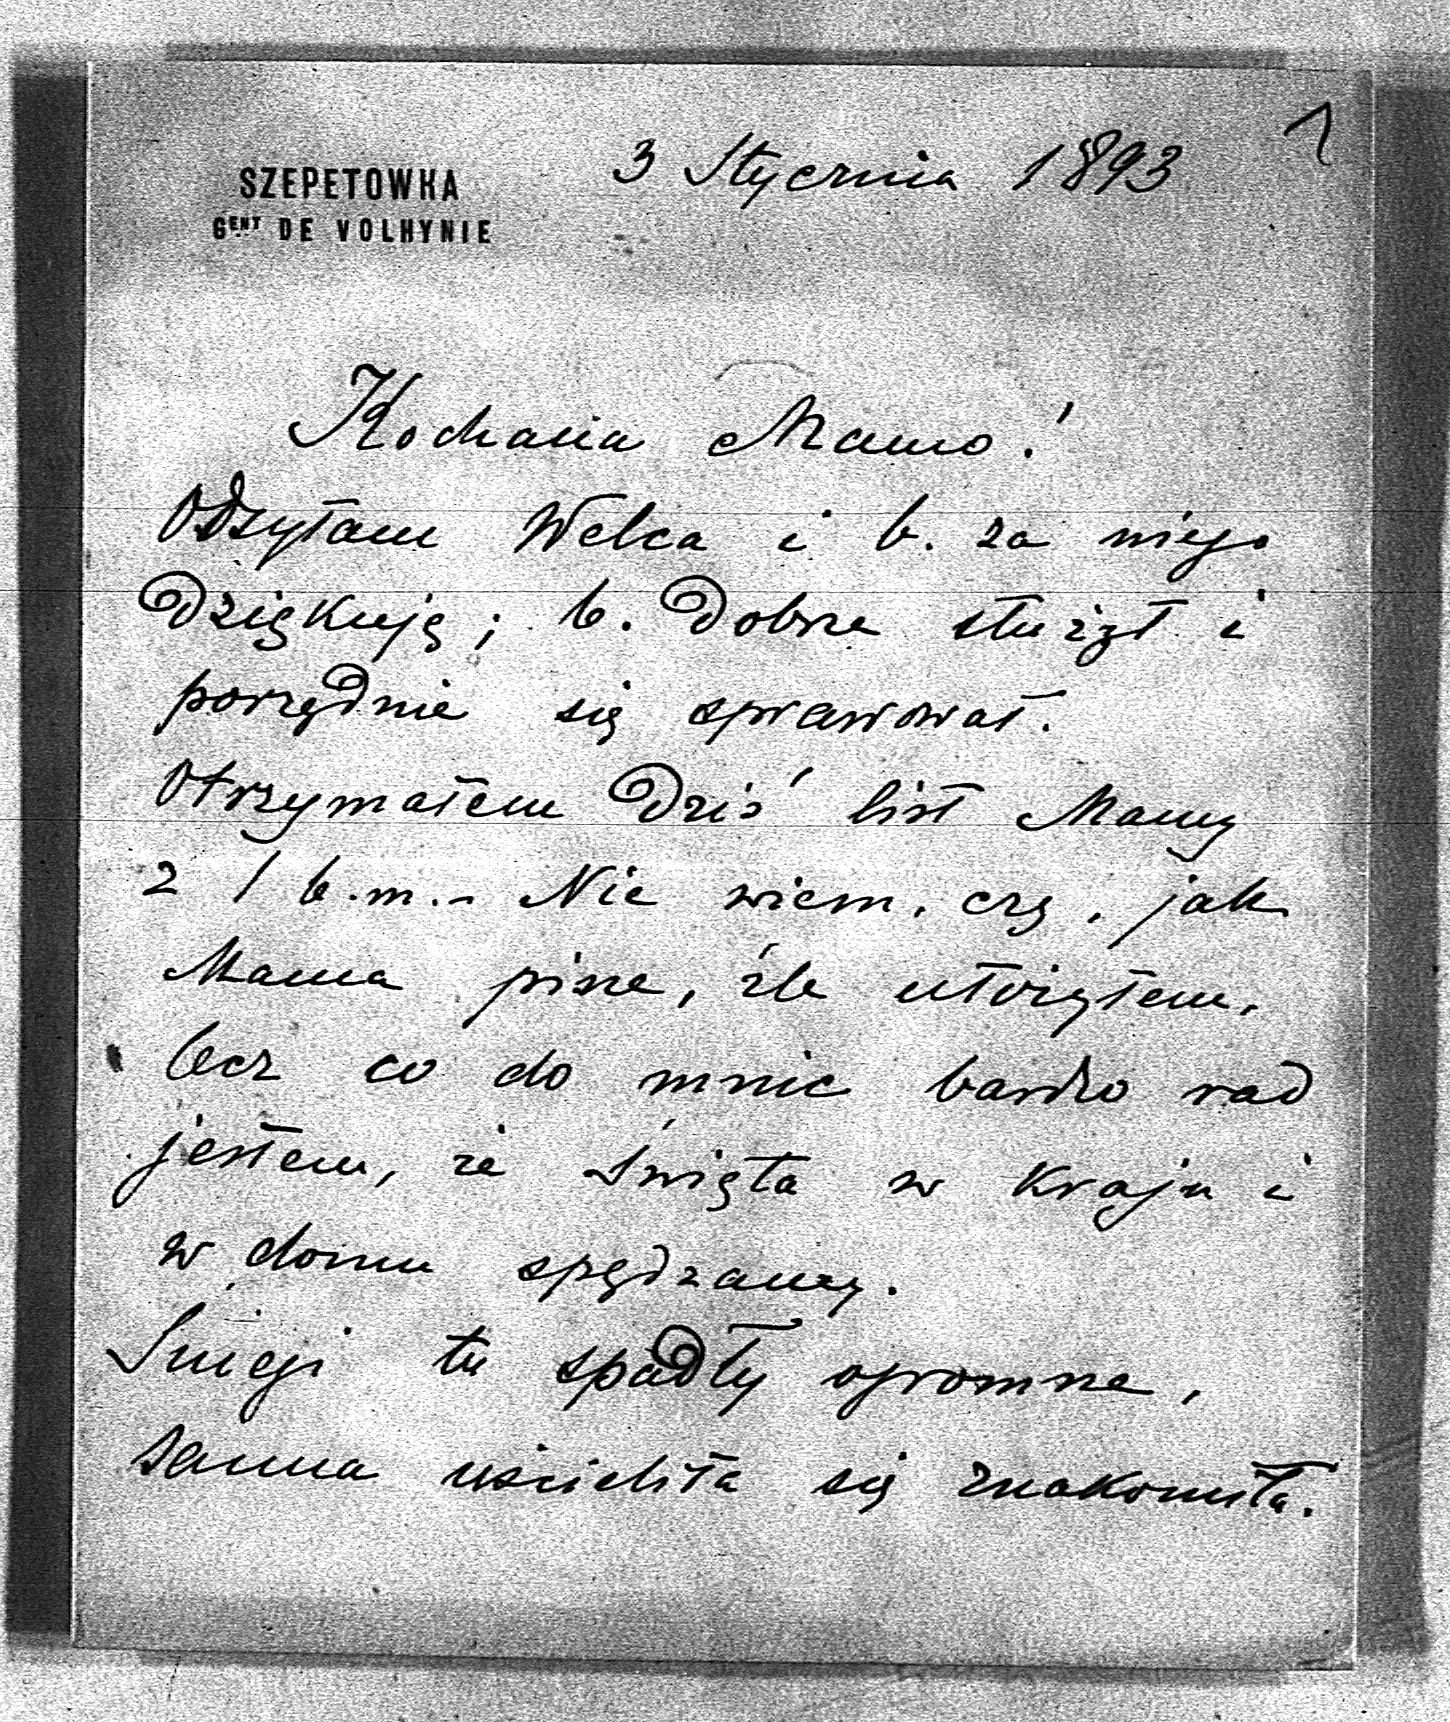 1
3 Stycznia 1893
SZEPETOWKA
GENT DE VOLHYNIE
Kochana Mamo!
Odsyłam Welca i b. za niego
dziękuję; b. dobrze służył i
porządnie się sprawował.
Otrzymałem dziś list Mamy
z 1 b.m. - Nie wiem, czy, jak
Mama pisze, źle utożyłem,
lecz co do mnie bardzo rad
jestem, że święta w kraju i
w domu spędzamy.
Śniegi tu spadły ogromne,
sanna uścieliła się znakomita.